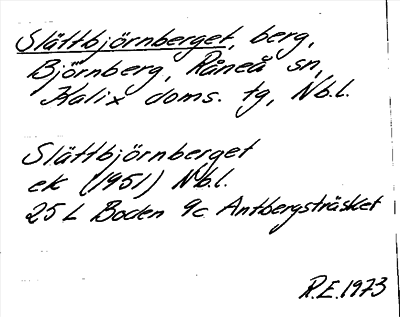 Slättbjörnberget, berg,
Björnberg, Råneå sn,
Kalix doms. tg, Nb.l.
Slättbjörnberget
ek (1951) Nb.l.
25 L Boden 9c Antbergsträsket
R.E. 1973